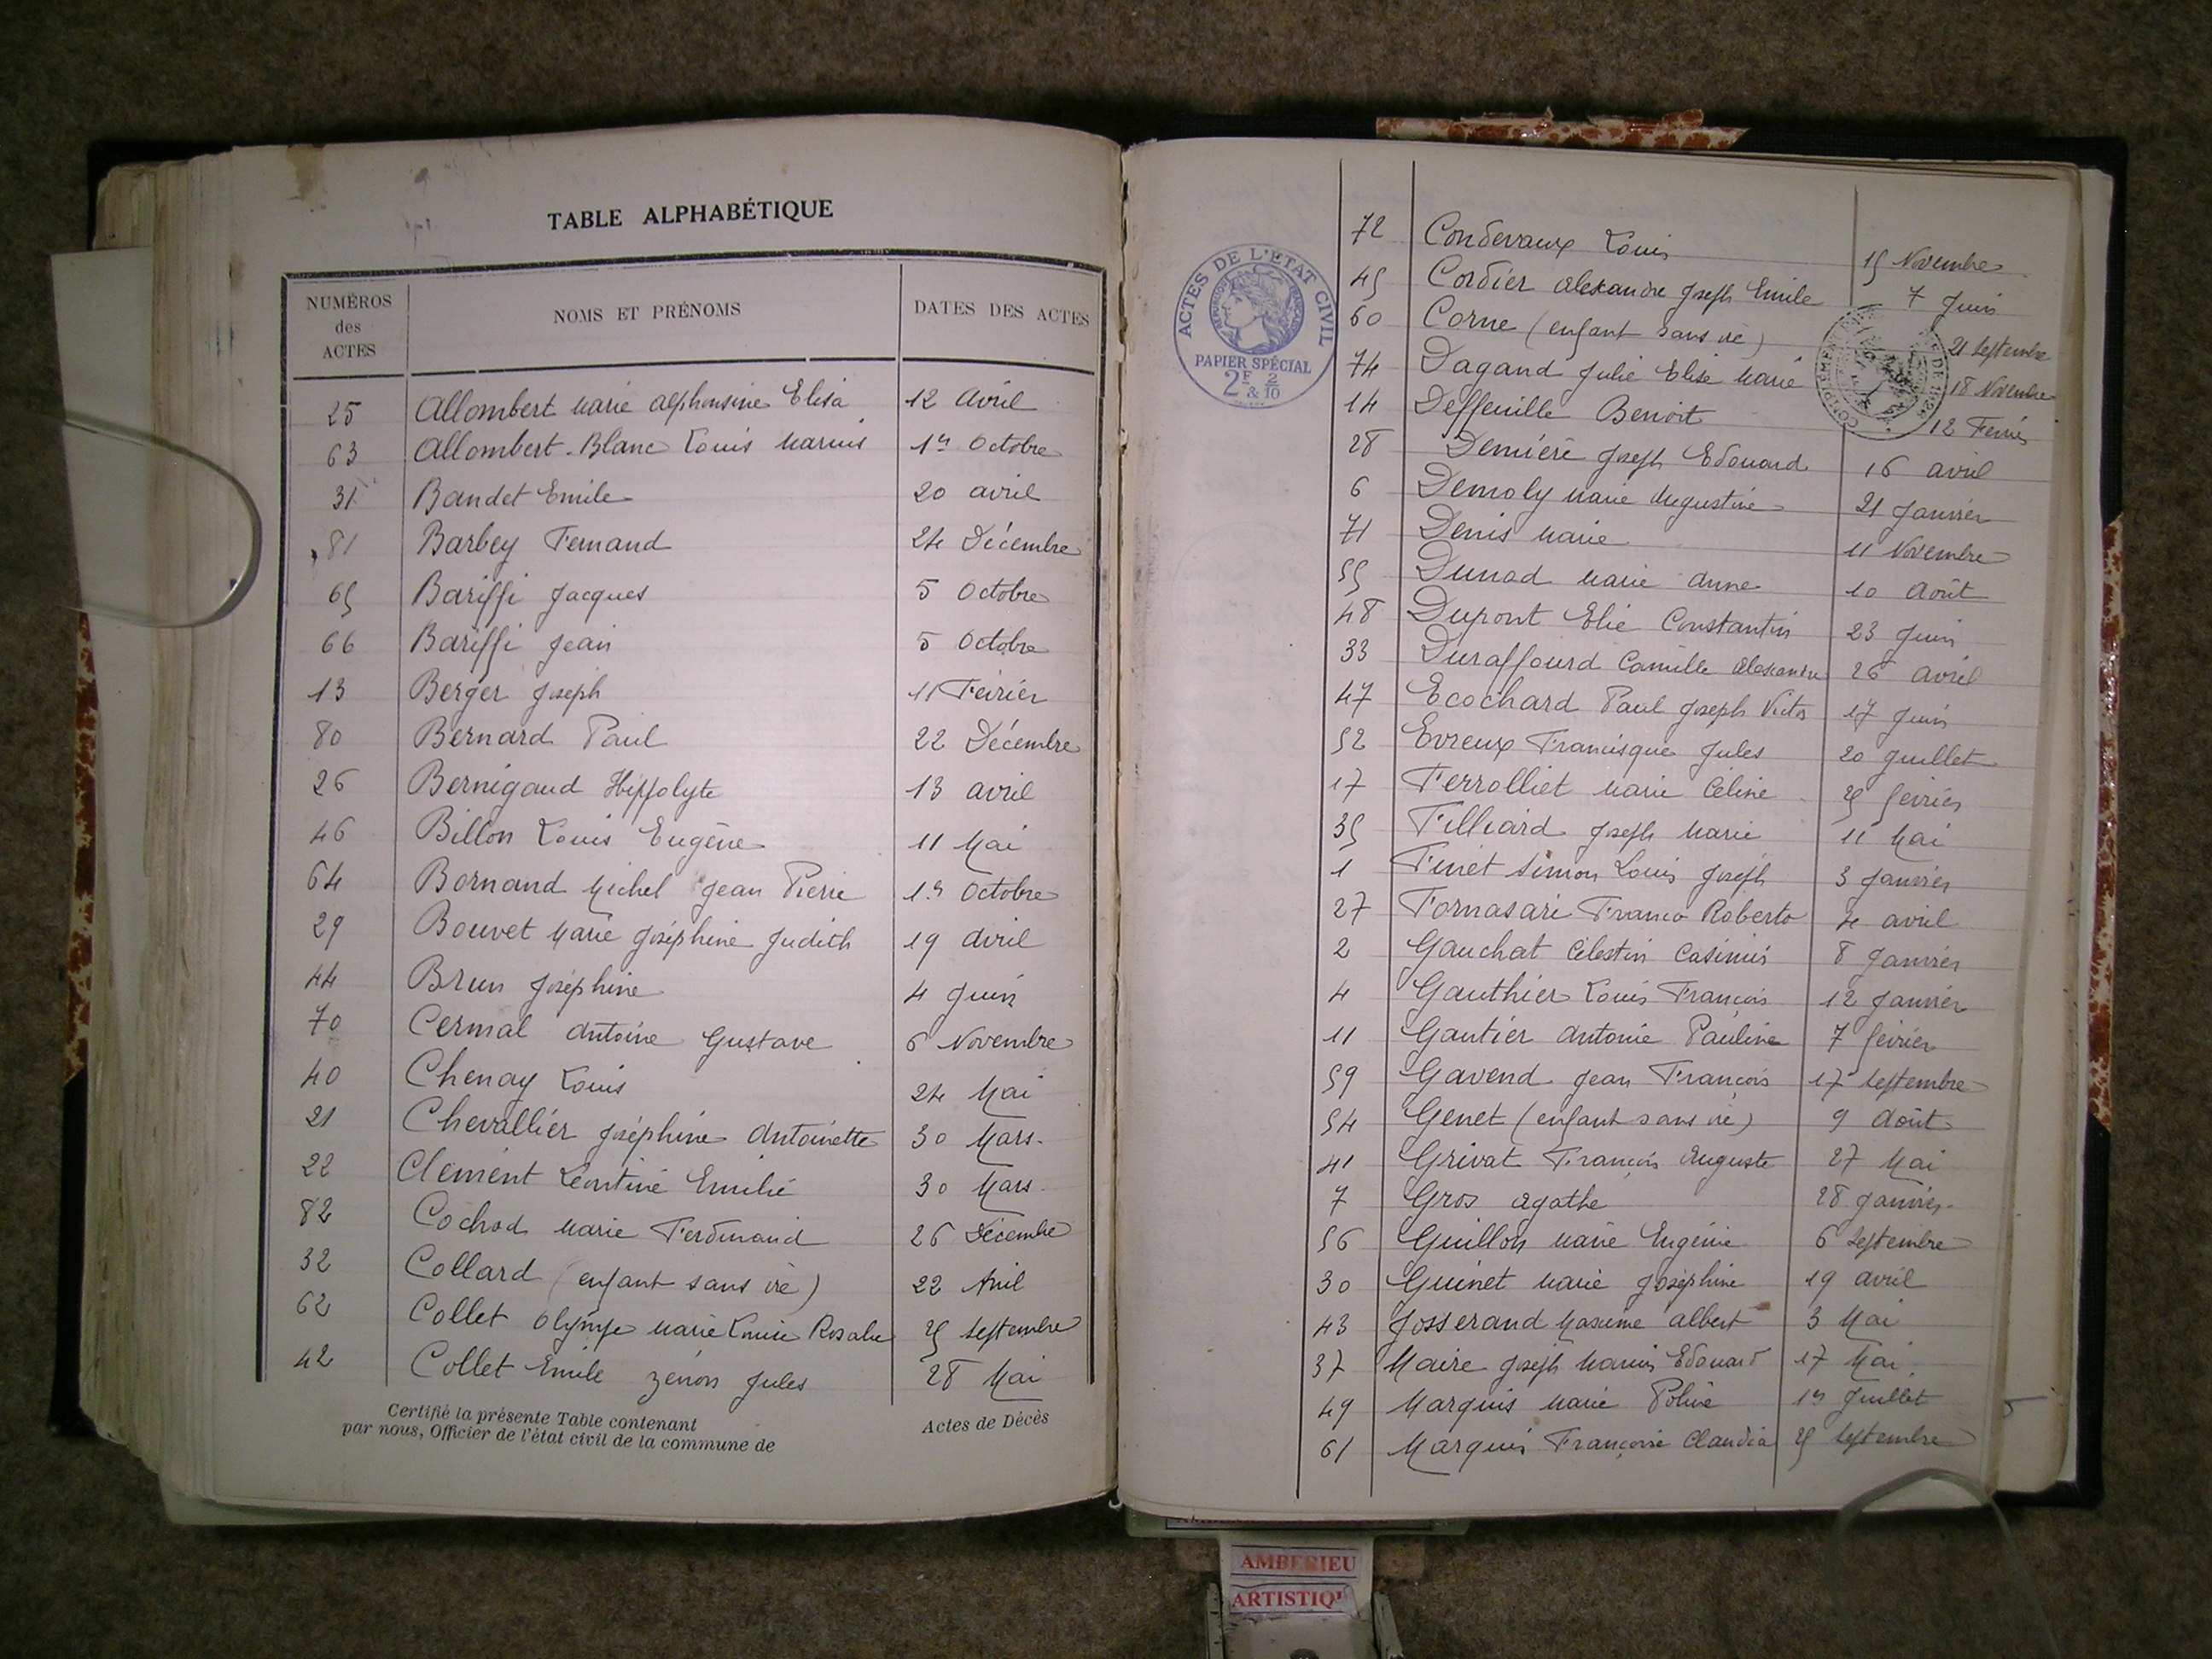 TABLE ALPHABÉTIQUE
NUMÉROS des ACTES NOMS ET PRÉNOMS DATES DES ACTES
25 Allombert Marie Alphonsine Elisa 12 Avril
63 Allombert-Blanc Louis Marius 1er Octobre
31 Bandet Emile 20 avril
81 Barbey Fernand 24 Décembre
65 Bariffi Jacques 5 Octobre
66 Bariffi Jean 5 Octobre
13 Berger Joseph 11 Février
80 Bernard Paul 22 Décembre
26 Bernigaud Hippolyte 13 avril
46 Billon Louis Eugène 11 Mai
64 Bornand Michel Jean Pierre 1er Octobre
29 Bouvet Marie Joséphine Judith 19 Avril
44 Brun Joséphine 4 Juin
70 Cermal Antoine Gustave 6 Novembre
40 Chenay Louis 24 Mai
21 Chevallier Joséphine Antoinette 30 Mars
22 Clément Léontine Emilie 30 Mars
82 Cochod Marie Ferdinand 26 Décembre
32 Collard (enfant sans vie) 22 Avril
62 Collet Olympe Marie Louise Rosalie 25 Septembre
42 Collet Emile Zénon Jules 28 Mai
Certifié la présente Table contenant Actes de Décès
par nous, Officier de l'état civil de la commune de
ACTES DE L'ETAT CIVIL
PAPIER SPÉCIAL
2F & 2/10
72 Condevaux Louis 15 Novembre
45 Cordier Alexandre Joseph Emile 7 Juin
60 Corne (enfant sans vie) 21 Septembre
74 Dagand Julie Elise Marie 18 Novembre
14 Deffeuille Benoit 12 Février
28 Demiéré Joseph Edouard 16 avril
6 Demoly Marie Augustine 21 Janvier
71 Denis Marie 11 Novembre
55 Dunod Marie Anne 10 Août
48 Dupont Elie Constantin 23 Juin
33 Duraffourd Camille Alexandre 26 avril
47 Ecochard Paul Joseph Victor 17 Juin
52 Evreux Francisque Jules 20 Juillet
17 Ferrolliet Marie Céline 25 février
35 Filliard Joseph Marie 11 Mai
1 Finet Simon Louis Joseph 3 Janvier
27 Fornasari Franco Roberto 4 avril
2 Gauchat Célestin Casimir 8 Janvier
4 Gauthier Louis François 12 Janvier
11 Gautier Antonie Pauline 7 février
59 Gavend Jean François 17 Septembre
54 Genet (enfant sans vie) 9 Août
41 Grivat François Auguste 27 Mai
7 Gros Agathe 28 Janvier
56 Guillon Marie Eugénie 6 Septembre
30 Guinet Marie Joséphine 19 avril
43 Josserand Maxime Albert 3 Mai
37 Maire Joseph Marius Edouard 17 Mai
49 Marquis Marie 1er Juillet
61 Marquis Françoise Claudia 25 Septembre
AMBERIEU
ARTISTIQ